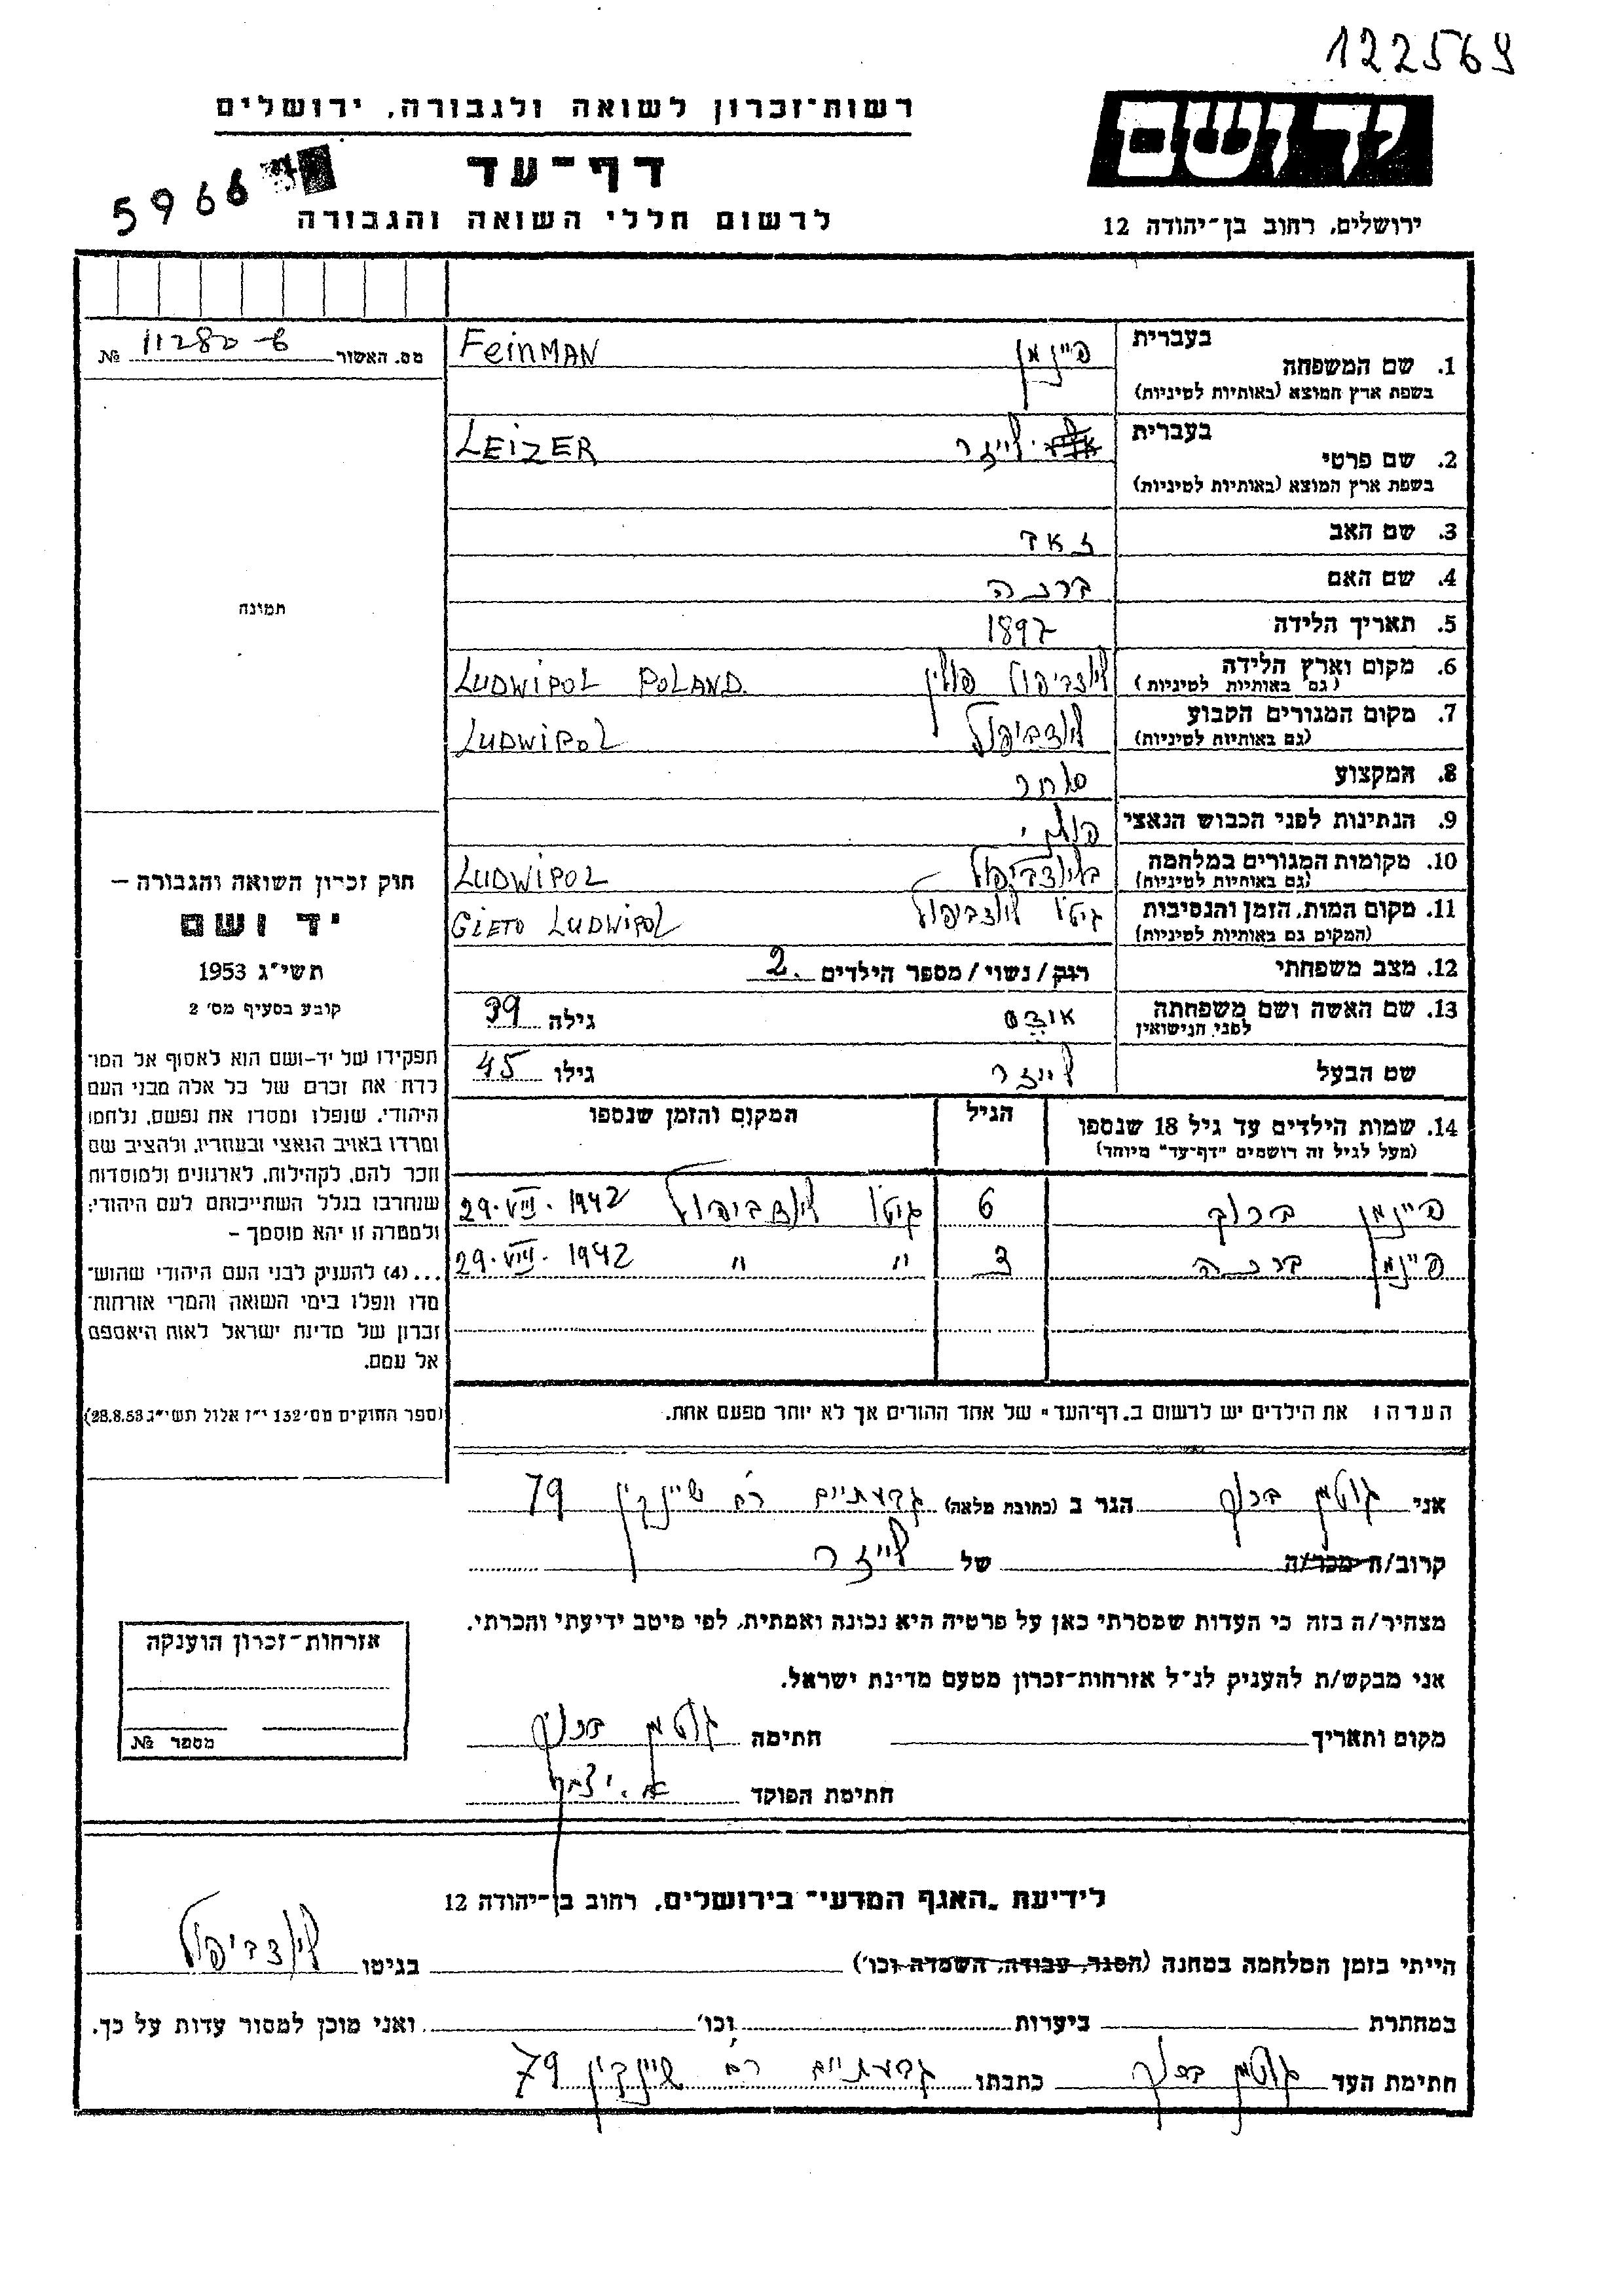 122569
רשות־זכרון לשואה ולגבורה, ירושלים
יד ושם
דף־עד
5966
לרשום חללי השואה והגבורה
ירושלים, רחוב בן־יהודה 12
בעברית
1. שם המשפחה פיינמן FeinMAN
בשפת ארץ המוצא (באותיות לטיניות)
מס. האשור 11280-6 №
בעברית
2. שם פרטי לייזר LEIZER
בשפת ארץ המוצא (באותיות לטיניות)
3. שם האב
4. שם האם ברכה
5. תאריך הלידה 1897
6. מקום וארץ הלידה לודביפול פולין LUDWIPOL POLAND
(גם באותיות לטיניות)
7. מקום המגורים הקבוע לודביפול LUDWIPOL
(גם באותיות לטיניות)
8. המקצוע סוחר
9. הנתינות לפני הכבוש הנאצי פולני
10. מקומות המגורים במלחמה בלודביפול LUDWIPOL
(גם באותיות לטיניות)
11. מקום המות, הזמן והנסיבות גיטו לודביפול GIETO LUDWIPOL
(המקום גם באותיות לטיניות)
12. מצב משפחתי רווק/נשוי/מספר הילדים 2.
13. שם האשה ושם משפחתה גילה 39
לפני הנישואין
שם הבעל לייזר גילו 45
14. שמות הילדים עד גיל 18 שנספו הגיל המקום והזמן שנספו
(מעל לגיל זה רושמים "דף־עד" מיוחד)
פיינמן ברוך 6 גיטו לודביפול 29.VIII.1942
פיינמן ברכה 3 " " 29.VIII.1942
תמונה
חוק זכרון השואה והגבורה —
יד ושם
תשי״ג 1953
קובע בסעיף מס׳ 2
תפקידו של יד-ושם הוא לאסוף אל המו־
לדת את זכרם של כל אלה מבני העם
היהודי, שנפלו ומסרו את נפשם, נלחמו
ומרדו באויב הנאצי ובעוזריו, ולהציב שם
וזכר להם, לקהילות, לארגונים ולמוסדות
שנחרבו בגלל השתייכותם לעם היהודי;
ולמטרה זו יהא מוסמך —
...(4) להעניק לבני העם היהודי שהוש־
מדו ונפלו בימי השואה והמרי אזרחות־
זכרון של מדינת ישראל לאות היאספם
אל עמם.
(ספר החוקים מס׳ 132 י״ז אלול תשי״ג 28.8.53)
הערה: את הילדים יש לרשום ב„דף־העד" של אחד ההורים אך לא יותר מפעם אחת.
אני גוטמן ברוך הגר ב (כתובת מלאה) גבעתיים רח׳ שיינקין 79
קרוב/ה מכר/ה של לייזר
מצהיר/ה בזה כי העדות שמסרתי כאן על פרטיה היא נכונה ואמתית, לפי מיטב ידיעתי והכרתי.
אני מבקש/ת להעניק לנ״ל אזרחות־זכרון מטעם מדינת ישראל.
מקום ותאריך חתימה גוטמן ברוך
חתימת הפוקד
אזרחות־זכרון הוענקה
מספר №
לידיעת „האגף המדעי" בירושלים, רחוב בן־יהודה 12
הייתי בזמן המלחמה במחנה (הסגר, עבודה, השמדה וכו׳) בגיטו לודביפול
במחתרת ביערות וכו׳ ואני מוכן למסור עדות על כך.
חתימת העד גוטמן ברוך כתבתו גבעתיים רח׳ שיינקין 79